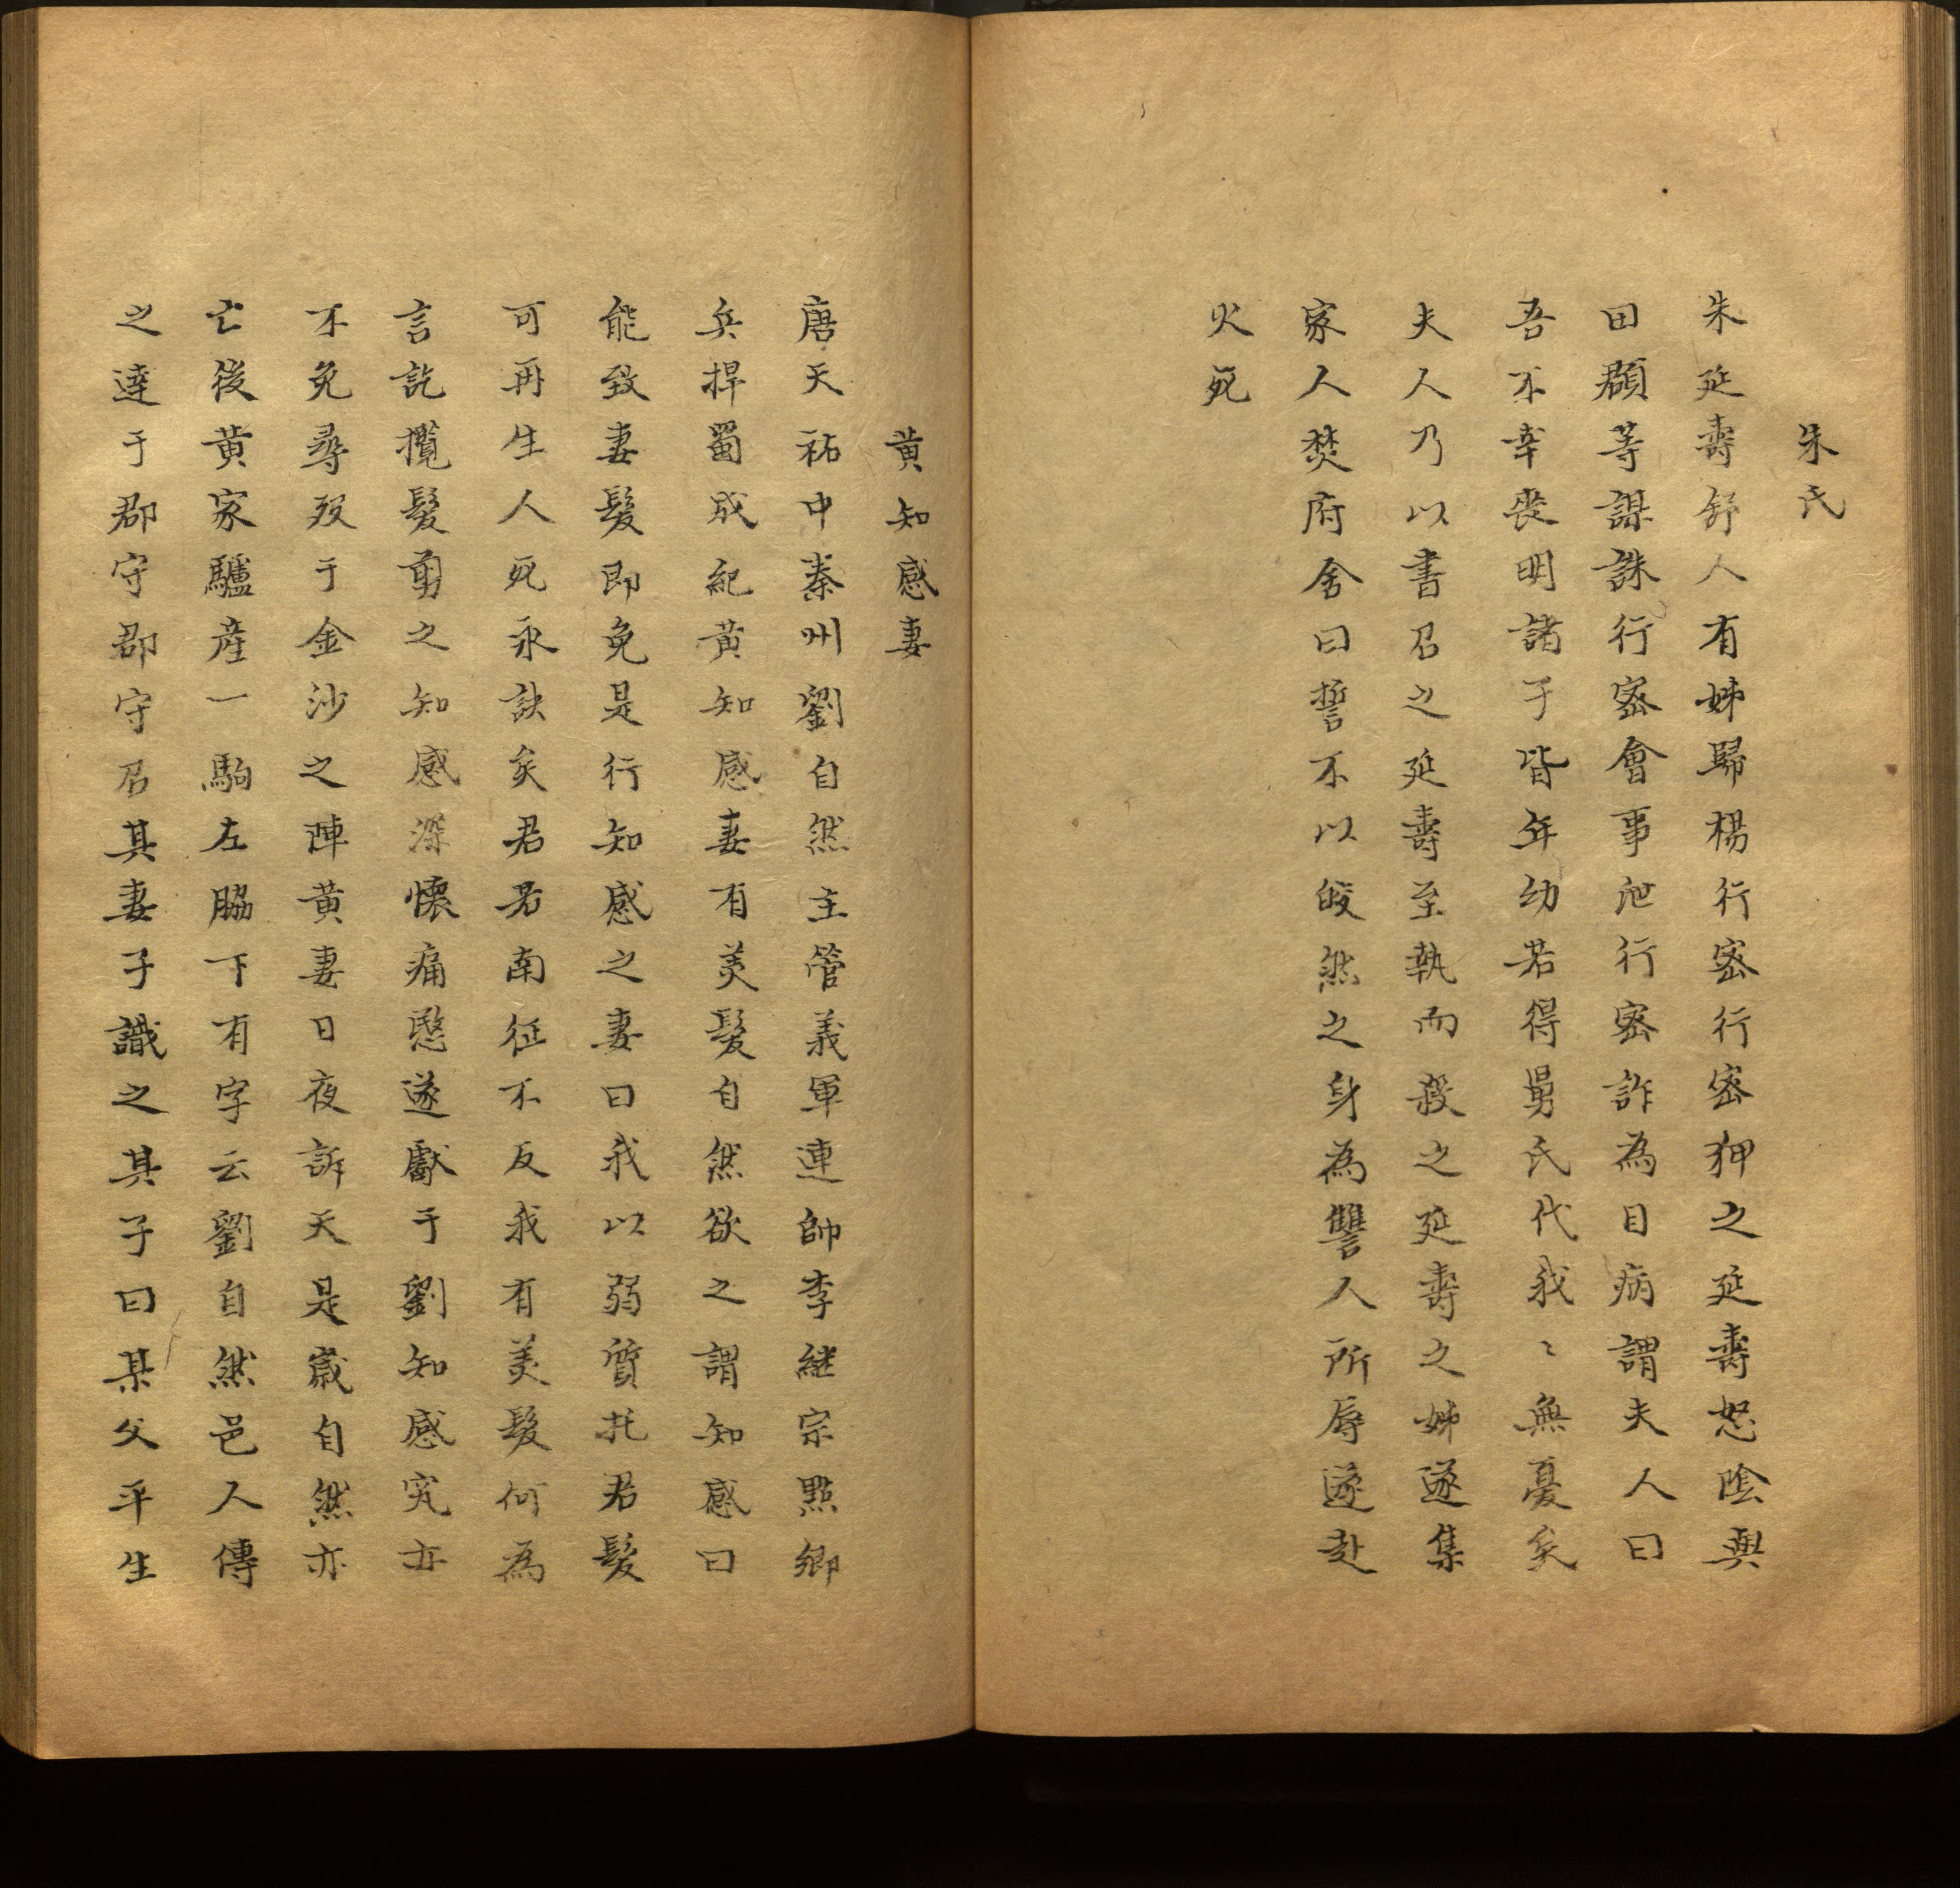 朱氏
朱延壽舒人有姊歸楊行密行密狎之延壽怒陰與
田頵等謀誅行密會事泄行密詐為目病謂夫人曰
吾不幸喪明諸子皆年幼若得舅氏代我〻無憂矣
夫人乃以書召之延壽至執而殺之延壽之姊遂集
家人焚府舍曰誓不以皎然之身為讐人所辱遂赴
火死
黃知感妻
唐天祐中秦州劉自然主管義軍連帥李継宗點鄉
兵捍蜀成紀黃知感妻有美髮自然欲之謂知感曰
能致妻髮即免是行知感之妻曰我以弱質托君髮
可再生人死永訣矣君若南征不反我有美髮何為
言訖攬髮剪之知感深懷痛愍遂獻于劉知感究亦
不免尋歿于金沙之陣黃妻日夜訴天是嵗自然亦
亡後黃家驢產一駒左脇下有字云劉自然邑人傳
之達于郡守郡守召其妻子識之其子曰某父平生